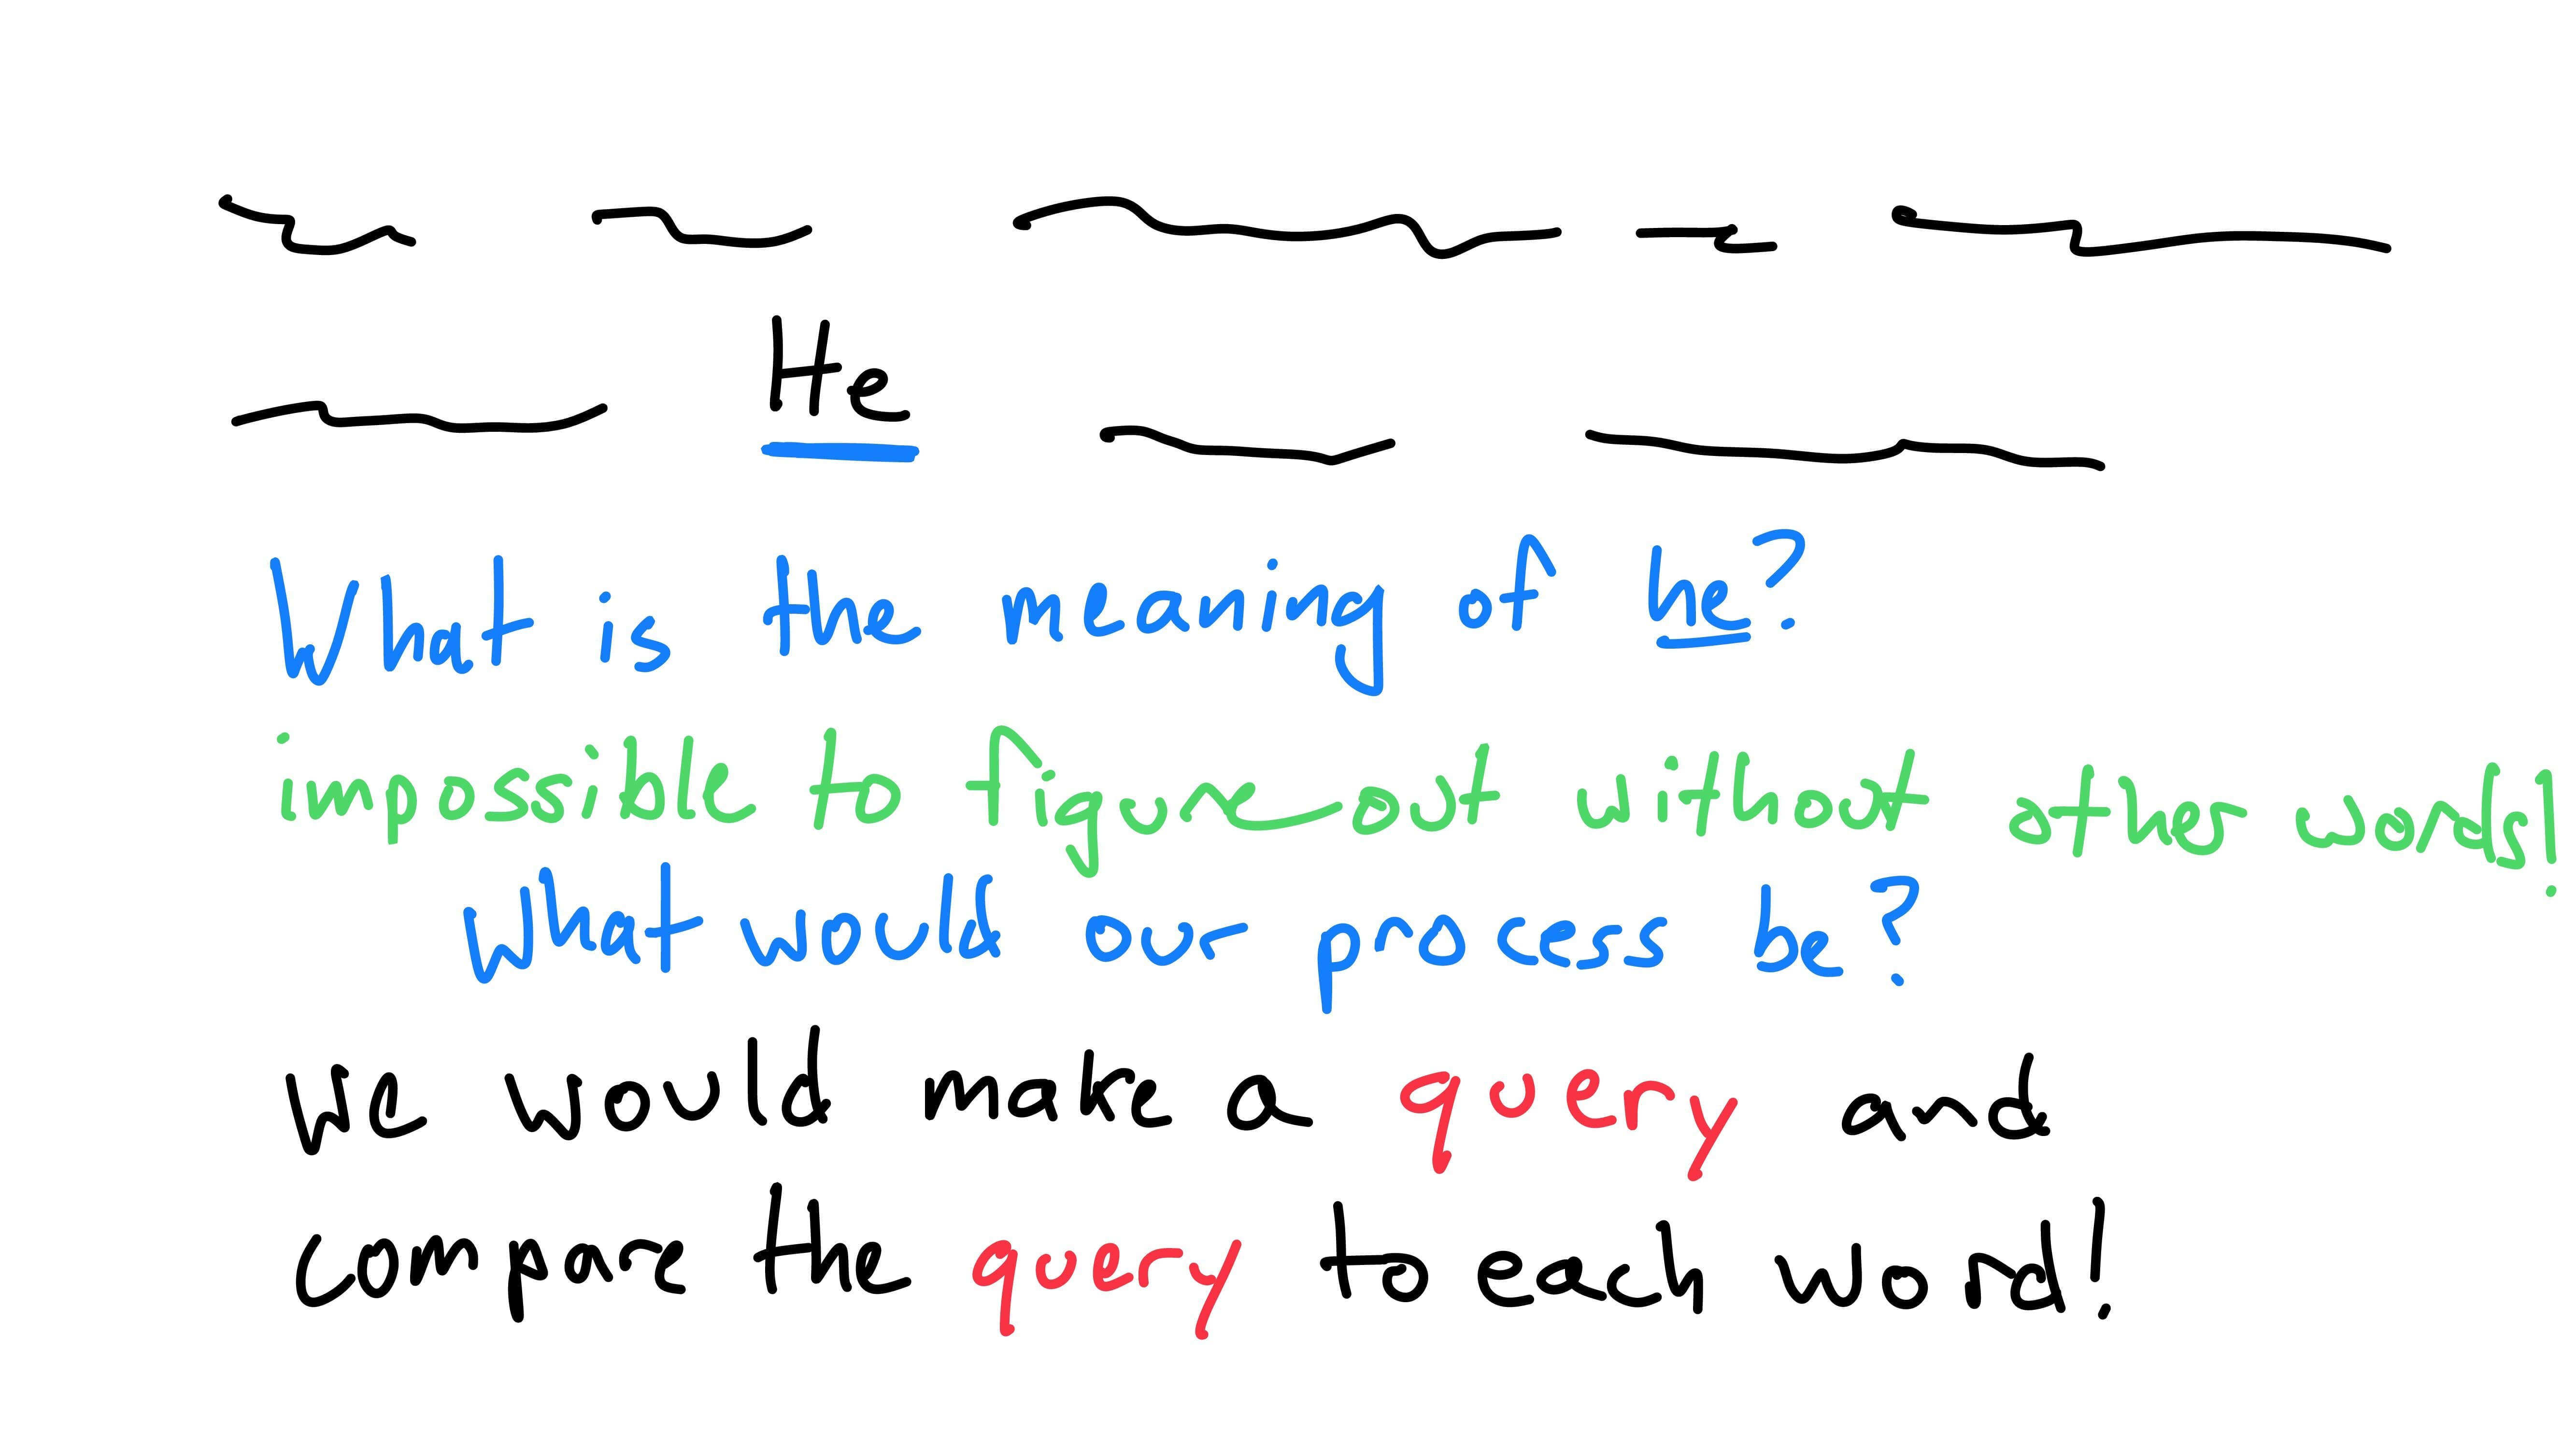 He
What is the meaning of he?
impossible to figure out without other words!
What would our process be?
We would make a query and
compare the query to each word!